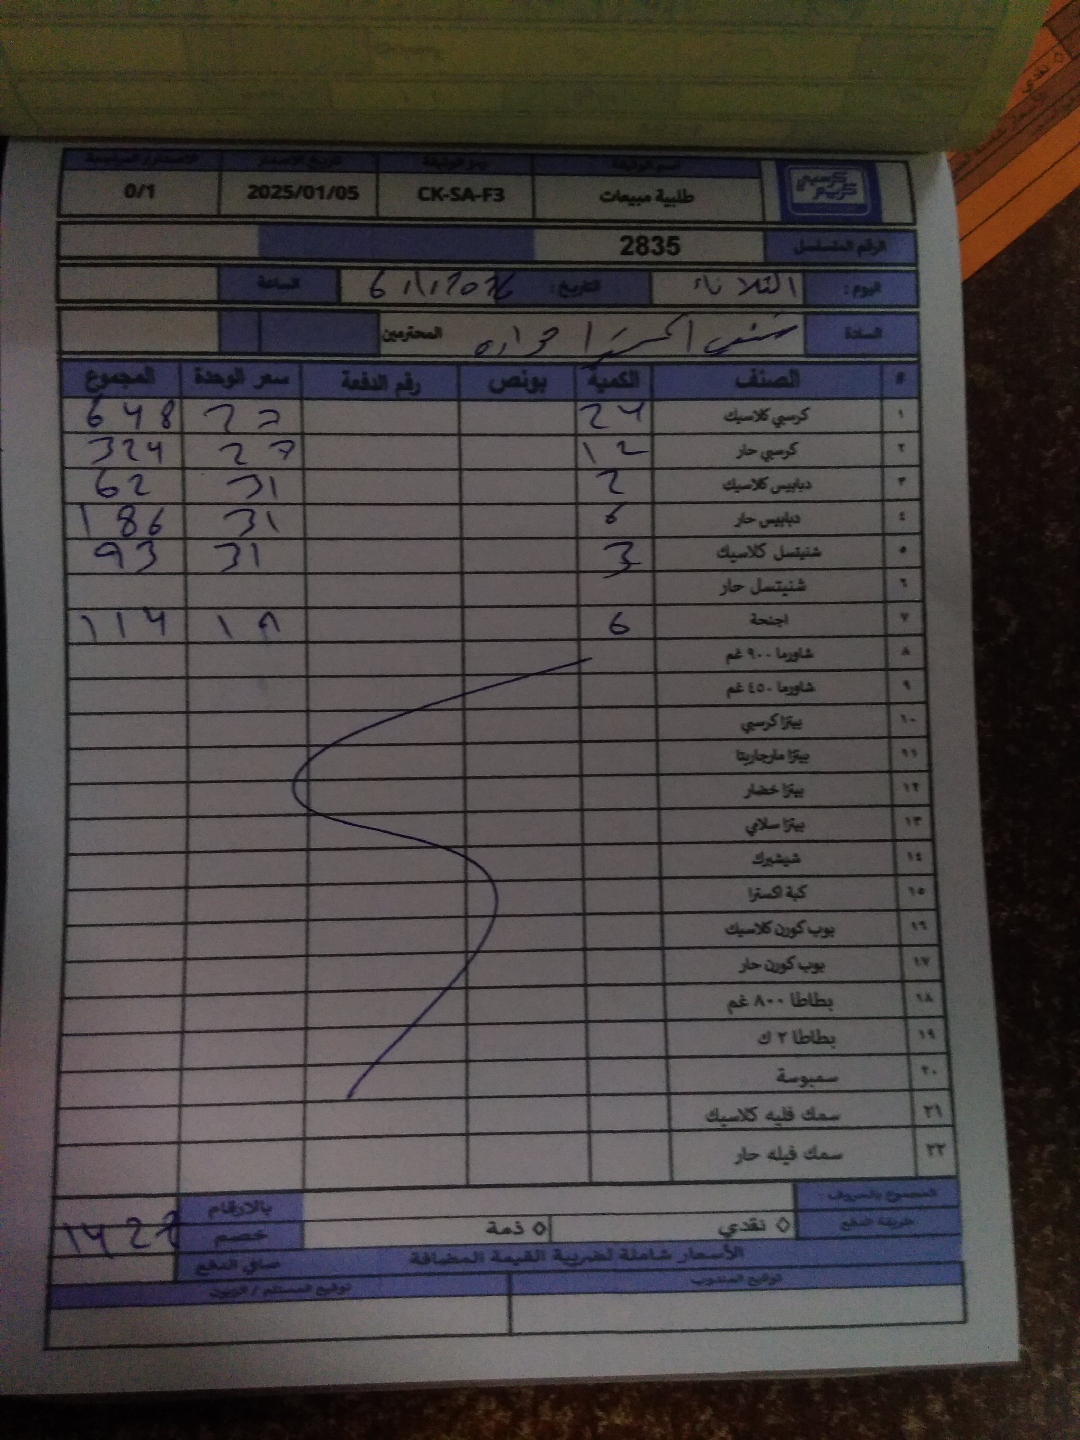 كرسبي كريم
اسم الوثيقة رمز الوثيقة تاريخ الاصدار الاصدار/ المراجعة
طلبية مبيعات CK-SA-F3 2025/01/05 0/1
الرقم المتسلسل 2835
اليوم : الثلاثاء التاريخ : 6/1/2026 الساعة
السادة المحترمين
# الصنف الكمية بونص رقم الدفعة سعر الوحدة المجموع
١ كرسبي كلاسيك 24 27 648
٢ كرسبي حار 12 27 324
٣ دبابيس كلاسيك 2 31 62
٤ دبابيس حار 6 31 186
٥ شنيتسل كلاسيك 3 31 93
٦ شنيتسل حار
٧ اجنحة 6 19 114
٨ شاورما ٩٠٠ غم
٩ شاورما ٤٥٠ غم
١٠ بيتزا كرسبي
١١ بيتزا مارجاريتا
١٢ بيتزا خضار
١٣ بيتزا سلامي
١٤ شيشبرك
١٥ كبة اكسترا
١٦ بوب كورن كلاسيك
١٧ بوب كورن حار
١٨ بطاطا ٨٠٠ غم
١٩ بطاطا ٢ ك
٢٠ سمبوسة
٢١ سمك فليه كلاسيك
٢٢ سمك فيله حار
المجموع بالحروف : بالارقام
طريقة الدفع ◊ نقدي ◊ ذمة خصم 1427
الأسعار شاملة لضريبة القيمة المضافة صافي الدفع
توقيع المندوب توقيع المستلم / الزبون